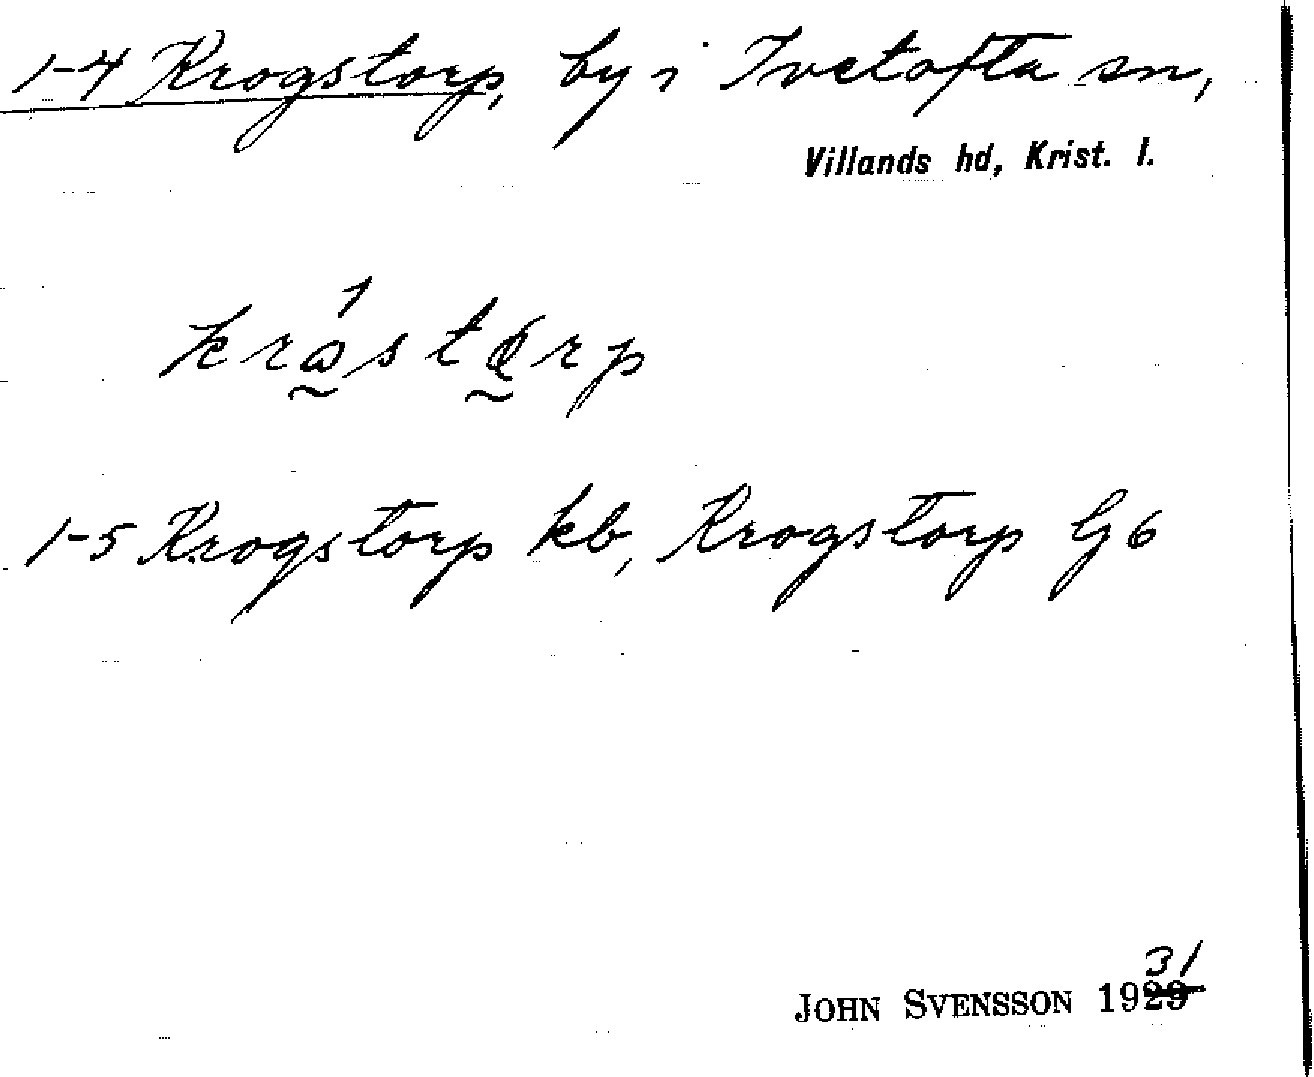 1-4 Krogstorp, by i Ivetofta sn,
Villands hd, Krist. l.
1-5 Krogstorp kb, Krogstorp G6
31
JOHN SVENSSON 1929